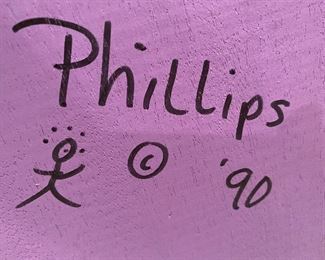 Phillips
© '90